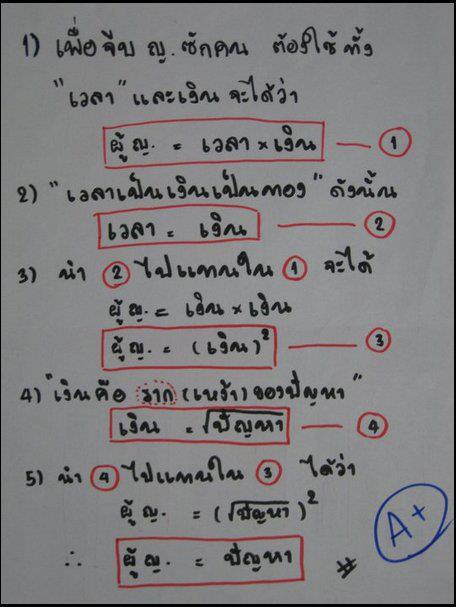 1) เพื่อจีบ ญ. ซักคน ต้องใช้ทั้ง
"เวลา" และเงิน จะได้ว่า
ผู้ ญ. = เวลา × เงิน — ①
2) "เวลาเป็นเงินเป็นทอง" ดังนั้น
เวลา = เงิน — ②
3) นำ ② ไปแทนใน ① จะได้
ผู้ ญ. = เงิน × เงิน
ผู้ ญ. = (เงิน)² — ③
4) "เงินคือ ราก (เหง้า) ของปัญหา"
เงิน = √ปัญหา — ④
5) นำ ④ ไปแทนใน ③ ได้ว่า
ผู้ ญ. = (√ปัญหา)²
∴ ผู้ ญ. = ปัญหา #
A+